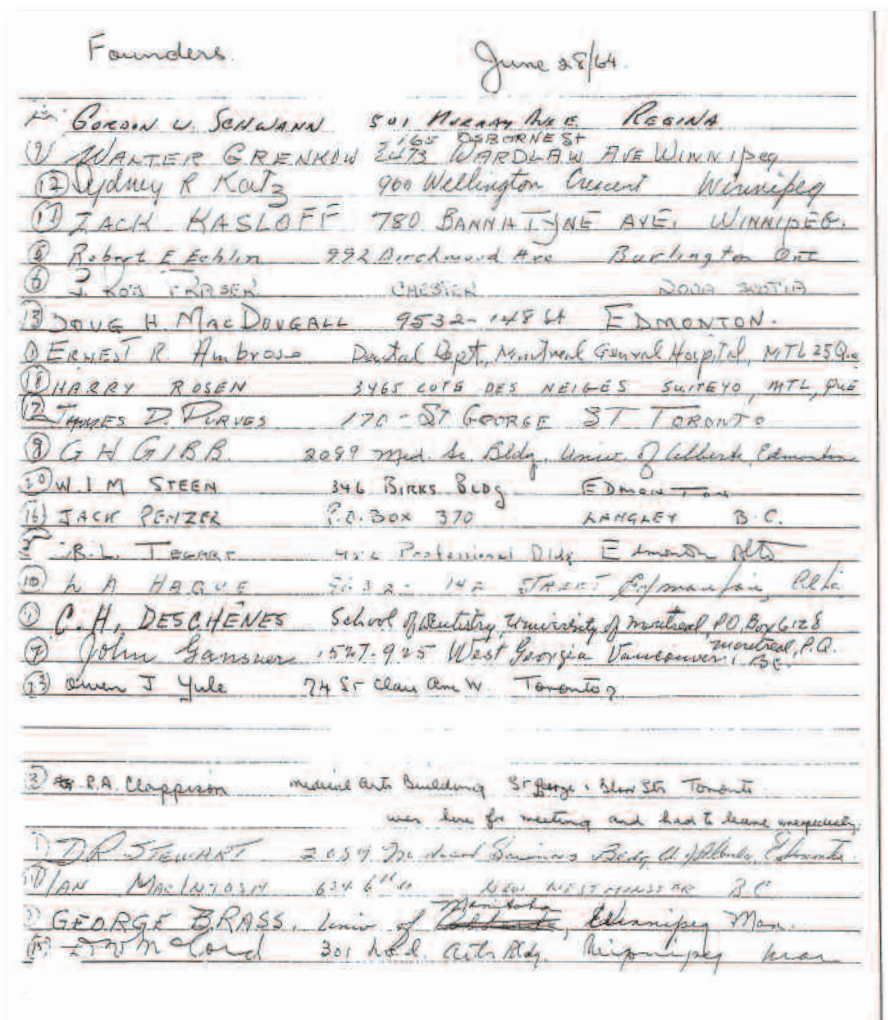 Founders. June 28/64.
GORDON W. SCHWANN 501 MURRAY AVE REGINA
165 OSBORNE ST
WALTER GRENKOW 2473 WARDLAW AVE WINNIPEG
(12) Sydney R Katz 900 Wellington Crescent Winnipeg
ZACK KASLOFF 780 BANNATYNE AVE, WINNIPEG.
(5) Robert E Echlin 992 Birchwood Ave Burlington Ont
(6) J. ROY FRASER CHESTER NOVA SCOTIA
(13) DOUG H. MACDOUGALL 9532-148 St EDMONTON.
(1) ERNEST R. Ambrose Dental Dept, Montreal General Hospital, MTL 25 Que
HARRY ROSEN 3465 COTE DES NEIGES SUITE 40, MTL, QUE
THOMAS D. PURVES 170-ST GEORGE ST TORONTO
(8) G H GIBB 2089 Med. Sc. Bldg, Univ. of Alberta, Edmonton
(20) W. I M STEEN 346 BIRKS BLDG EDMONTON
(16) JACK PENZER P.O. BOX 370 LANGLEY B.C.
R. L. TEGART Professional Bldg Edmonton Alta
(10) L A HAGUE 142 STREET Edmonton, Alta
C. H. DESCHÊNES School of Dentistry, University of Montreal, P.O. Box 6128
Montreal, P.Q.
(7) John Gansner 1527-925 West Georgia Vancouver, BC.
(23) Owen J Yule 74 St Clair Ave W. Toronto 7
(3) R.A. Clappison Medical Arts Building St George & Bloor Sts Toronto
was here for meeting and had to leave unexpectedly.
D R STEWART 2059 Medical Sciences Bldg U of Alberta, Edmonton.
IAN MACINTOSH 634 6th St NEW WESTMINSTER B C
Manitoba
GEORGE BRASS. Univ of Winnipeg Man.
(15) McCord 301 Med. Arts Bldg. Winnipeg Man